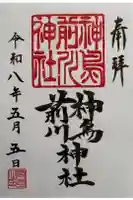 奉拝
神鳥
前川
神社
神鳥
前川神社
令和八年五月五日